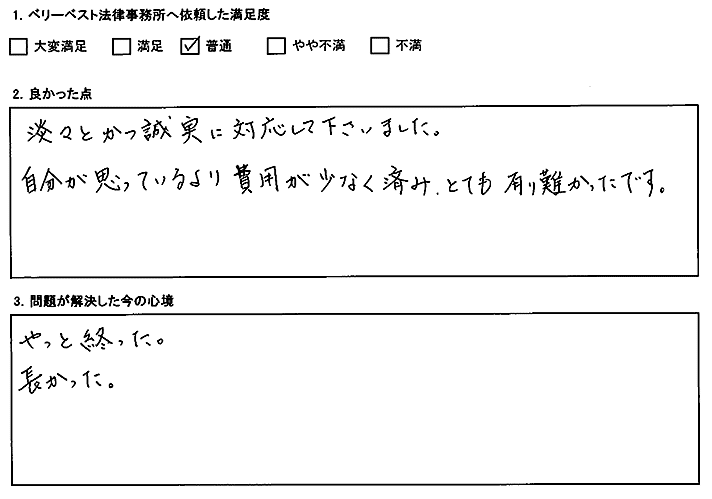 1. ベリーベスト法律事務所へ依頼した満足度
□ 大変満足 □ 満足 ☑ 普通 □ やや不満 □ 不満
2. 良かった点
淡々とかつ誠実に対応して下さいました。
自分が思っているより費用が少なく済み、とても有り難かったです。
3. 問題が解決した今の心境
やっと終った。
長かった。